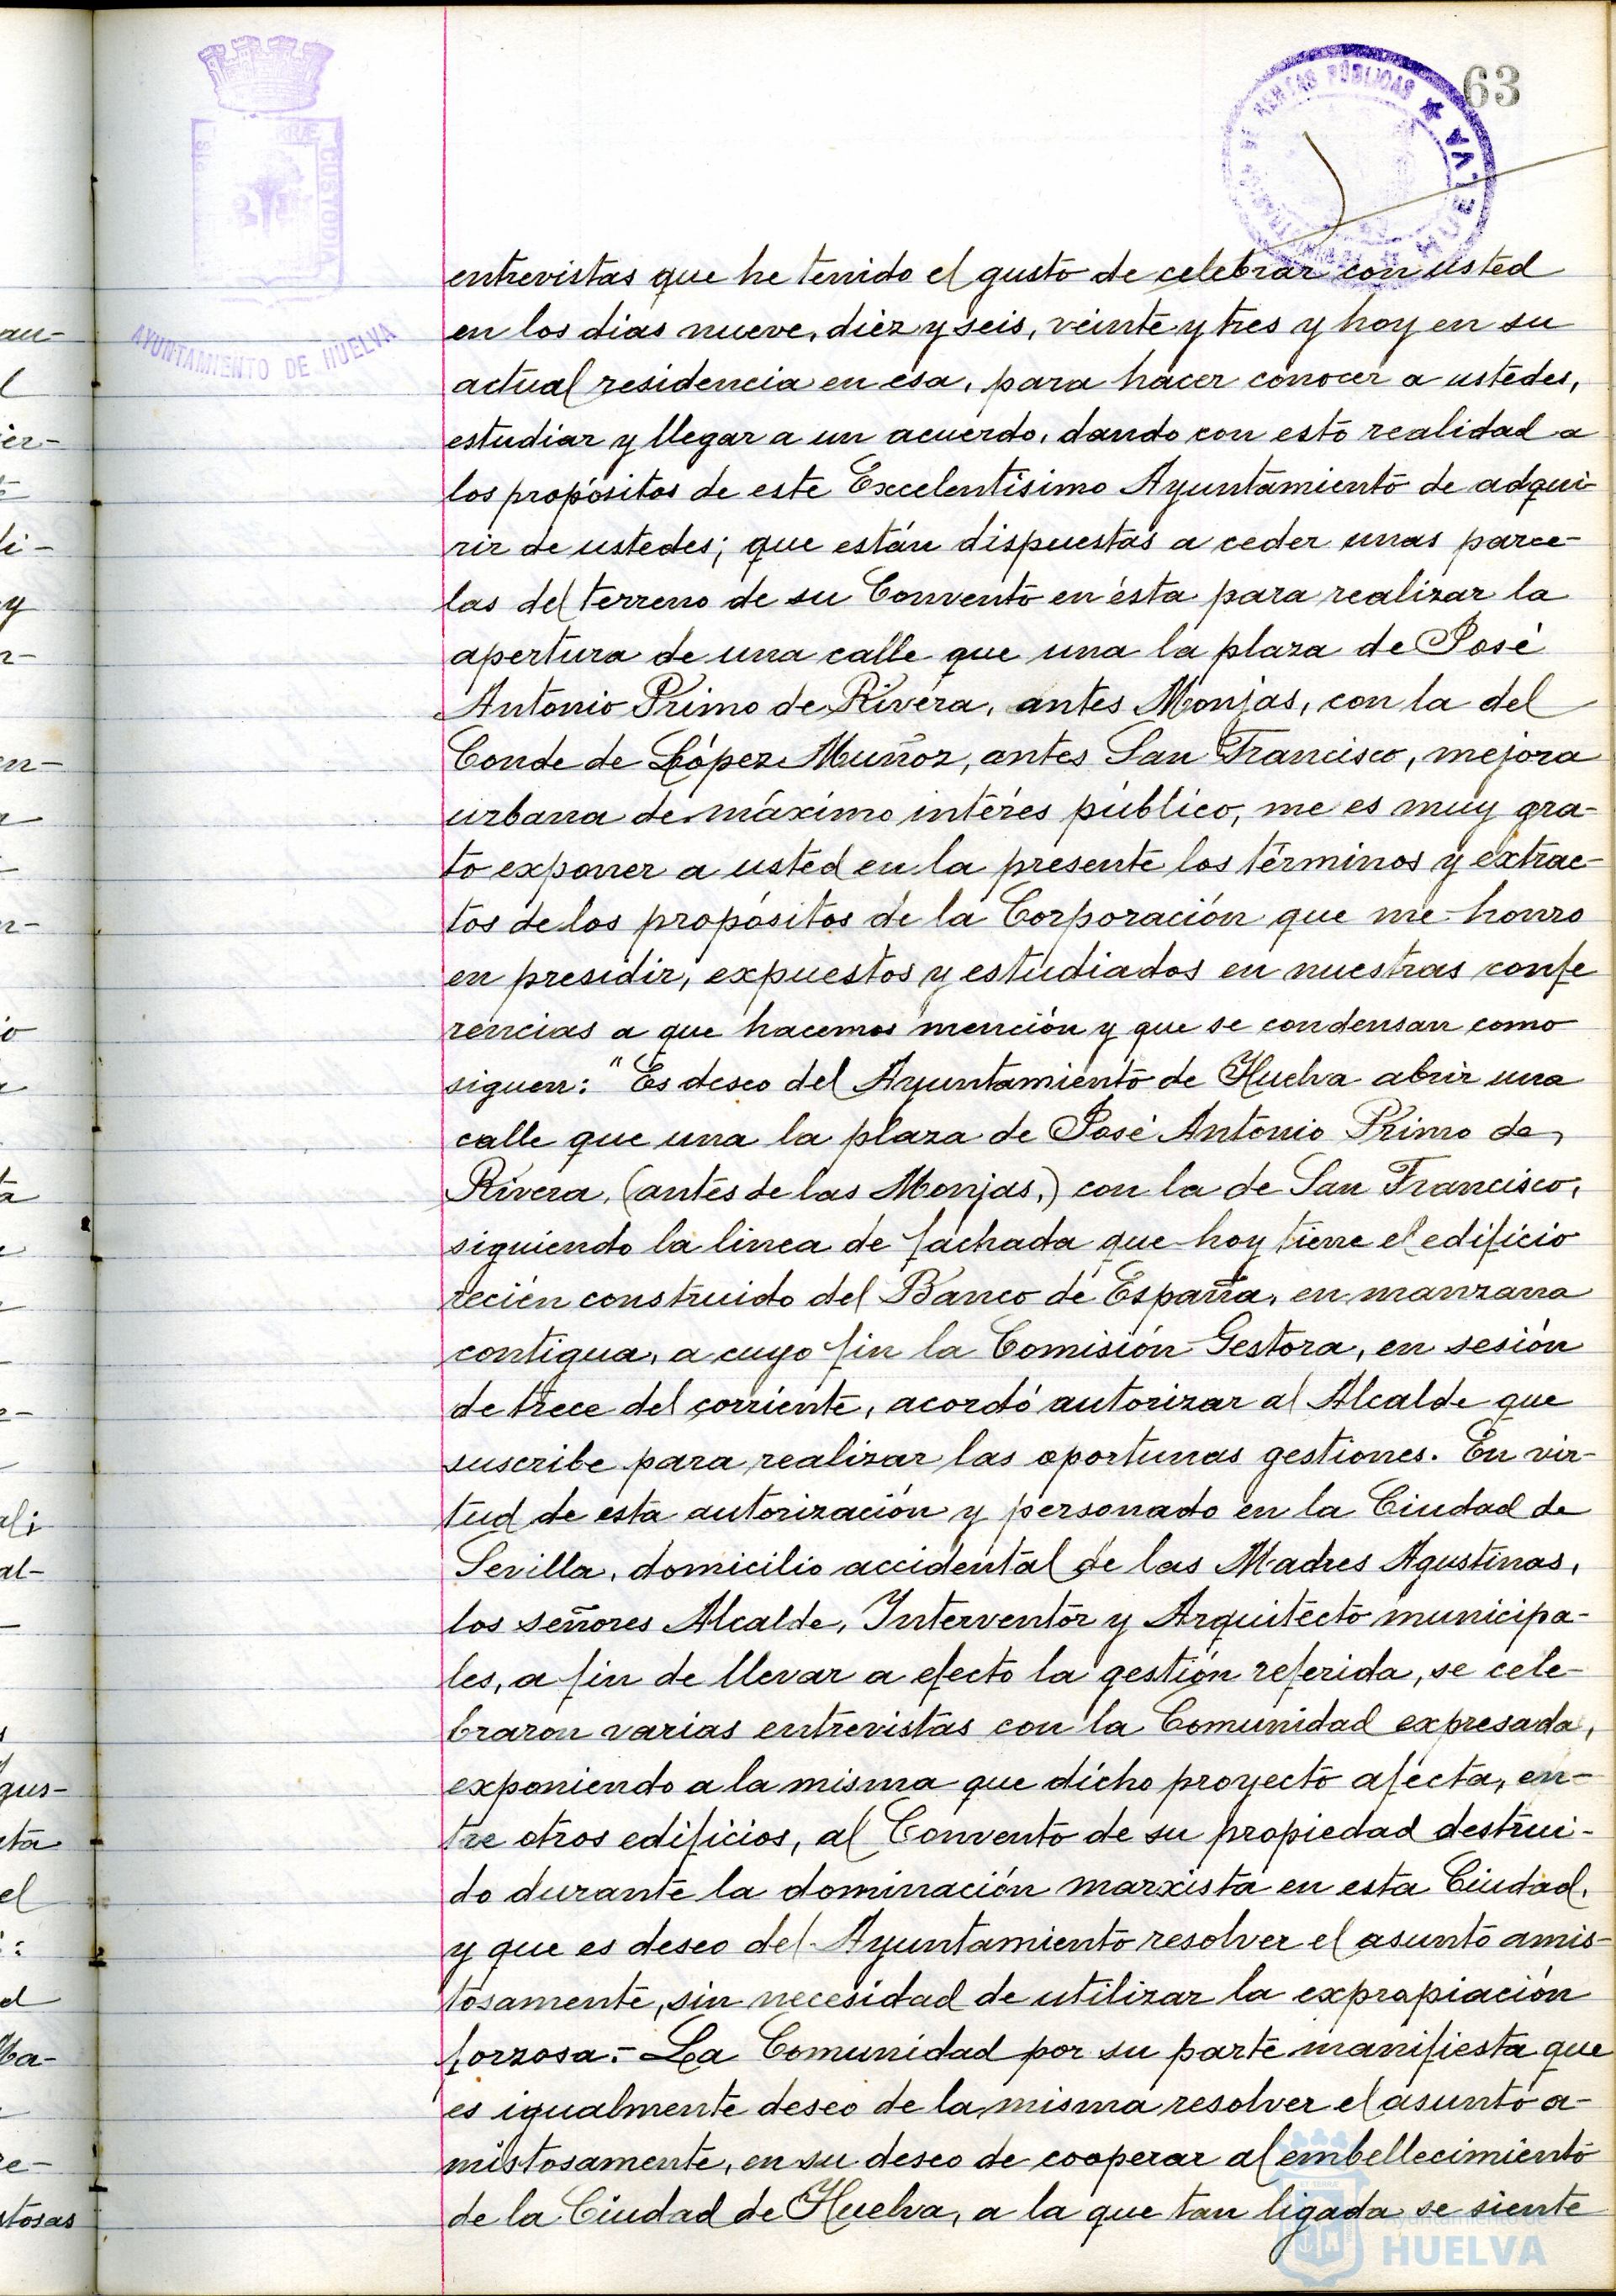 63
RENTAS PÚBLICAS ★ HUELVA
CUSTODIA
AYUNTAMIENTO DE HUELVA
entrevistas que he tenido el gusto de celebrar con usted
en los dias nueve, diez y seis, veinte y tres y hoy en su
actual residencia en esa, para hacer conocer a ustedes,
estudiar y llegar a un acuerdo, dando con esto realidad a
los propósitos de este Excelentisimo Ayuntamiento de adqui-
rir de ustedes; que están dispuestas a ceder unas parce-
las del terreno de su Convento en ésta para realizar la
apertura de una calle que una la plaza de José
Antonio Primo de Rivera, antes Monjas, con la del
Conde de López Muñoz, antes San Francisco, mejora
urbana de máximo interés público, me es muy gra-
to exponer a usted en la presente los términos y extrac-
tos de los propósitos de la Corporación que me honro
en presidir, expuestos y estudiados en nuestras confe
rencias a que hacemos mención y que se condensan como
siguen: "Es deseo del Ayuntamiento de Huelva abrir una
calle que una la plaza de José Antonio Primo de
Rivera, (antes de las Monjas,) con la de San Francisco,
siguiendo la linea de fachada que hoy tiene el edificio
recién construido del Banco de España, en manzana
contigua, a cuyo fin la Comisión Gestora, en sesión
de trece del corriente, acordó autorizar al Alcalde que
suscribe para realizar las oportunas gestiones. En vir-
tud de esta autorización y personado en la Ciudad de
Sevilla, domicilio accidental de las Madres Agustinas,
los señores Alcalde, Interventor y Arquitecto municipa-
les, a fin de llevar a efecto la gestión referida, se cele-
braron varias entrevistas con la Comunidad expresada,
exponiendo a la misma que dicho proyecto afecta, en-
tre otros edificios, al Convento de su propiedad destrui-
do durante la dominación marxista en esta Ciudad,
y que es deseo del Ayuntamiento resolver el asunto amis-
tosamente, sin necesidad de utilizar la expropiación
forzosa.- La Comunidad por su parte manifiesta que
es igualmente deseo de la misma resolver el asunto a-
mistosamente, en su deseo de cooperar al embellecimiento
de la Ciudad de Huelva, a la que tan ligada se siente
HUELVA